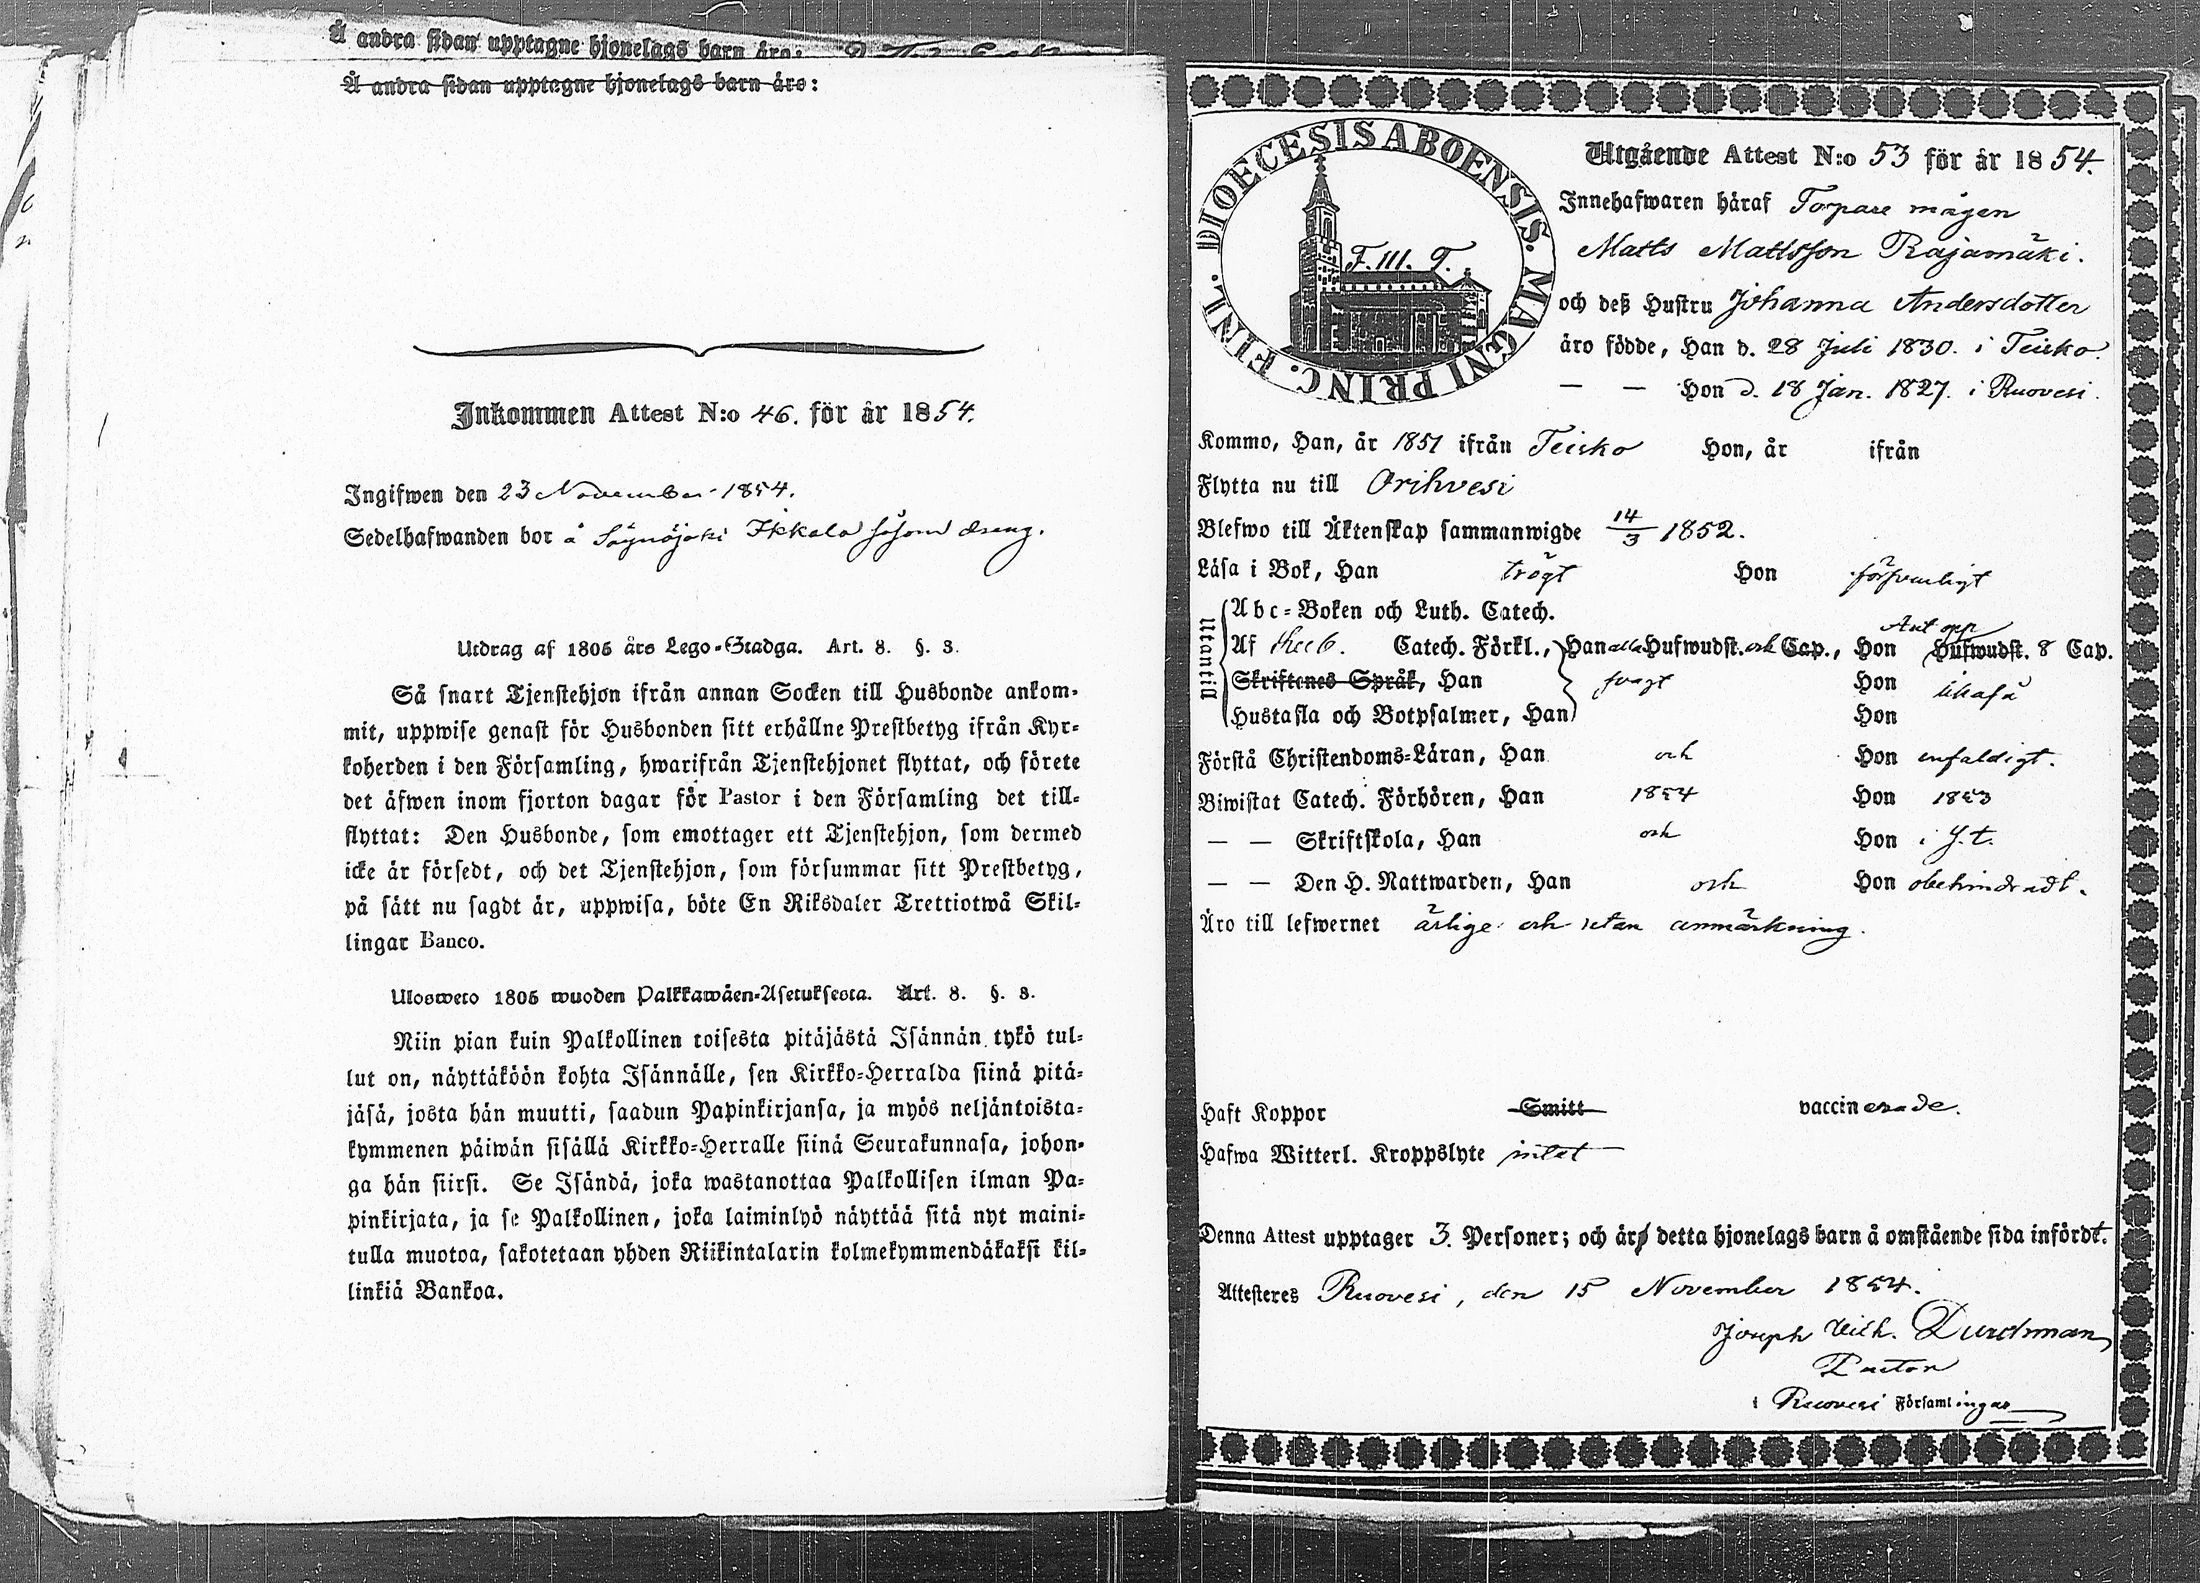 Å andra sidan upptagne hjonelags barn äro:
Å andra sidan upptagne hjonelags barn äro:
Inkommen Attest N:o 46. för år 1854.
Ingifwen den 23 November 1854.
Sedelhafwanden bor å Säynäjoki Ikkala såsom dräng.
Utdrag af 1805 års Lego-Stadga. Art. 8. §. 3.
Så snart Tjenstehjon ifrån annan Socken till Husbonde ankom-
mit, uppwise genast för Husbonden sitt erhållne Prestbetyg ifrån Kyr-
koherden i den Församling, hwarifrån Tjenstehjonet flyttat, och förete
det äfwen inom fjorton dagar för Pastor i den Församling det till-
flyttat: Den Husbonde, som emottager ett Tjenstehjon, som dermed
icke är försedt, och det Tjenstehjon, som försummar sitt Prestbetyg,
på sätt nu sagdt är, uppwisa, böte En Riksdaler Trettiotwå Skil-
lingar Banco.
Ulosweto 1805 wuoden Palkkawäen-Asetuksesta. Art. 8. §. 3.
Niin pian kuin Palkollinen toisesta pitäjästä Isännän tykö tul-
lut on, näyttäköön kohta Isännälle, sen Kirkko-Herralda siinä pitä-
jäsä, josta hän muutti, saadun Papinkirjansa, ja myös neljäntoista-
kymmenen päiwän sisällä Kirkko-Herralle siinä Seurakunnasa, johon-
ga hän siirsi. Se Isändä, joka wastanottaa Palkollisen ilman Pa-
pinkirjata, ja se Palkollinen, joka laiminlyö näyttää sitä nyt maini-
tulla muotoa, sakotetaan yhden Riikintalarin kolmekymmendäkaksi kil-
linkiä Bankoa.
DIOECESIS ABOENSIS. MAGNI PRINC. FINL.
F. III. T.
Utgående Attest N:o 53 för år 1854.
Innehafwaren häraf Torpare mågen
Matts Mattsson Rajamäki.
och deß Hustru Johanna Andersdotter
äro födde, Han d. 28 Juli 1830. i Teisko.
— — Hon d. 18 Jan. 1827. i Ruovesi.
Kommo, Han, år 1851 ifrån Teisko Hon, år ifrån
Flytta nu till Orihvesi
Blefwo till Äktenskap sammanwigde 14/3 1852.
Läsa i Bok, Han trögt Hon försvarligt
Utantill
Abc-Boken och Luth. Catech.
Af Catech. Förkl., Han alla Hufwudst. och Cap., Hon Hufwudst. 8 Cap.
Skriftenes Språk, Han svagt Hon likaså
Hustafla och Botpsalmer, Han Hon
Förstå Christendoms-Läran, Han och Hon enfaldigt.
Biwistat Catech. Förhören, Han 1854 Hon 1853
— — Skriftskola, Han och Hon i s. t.
— — Den H. Nattwarden, Han och Hon obehindradt.
Äro till lefwernet ärlige och utan anmärkning.
Haft Koppor Smitt vaccinerade.
Hafwa Witterl. Kroppslyte intet
Denna Attest upptager 3. Personer; och är detta hjonelags barn å omstående sida infördt.
Attesteres Ruovesi, den 15 November 1854.
Joseph Wilh. Durchman
Pastor
i Ruovesi Församlingar